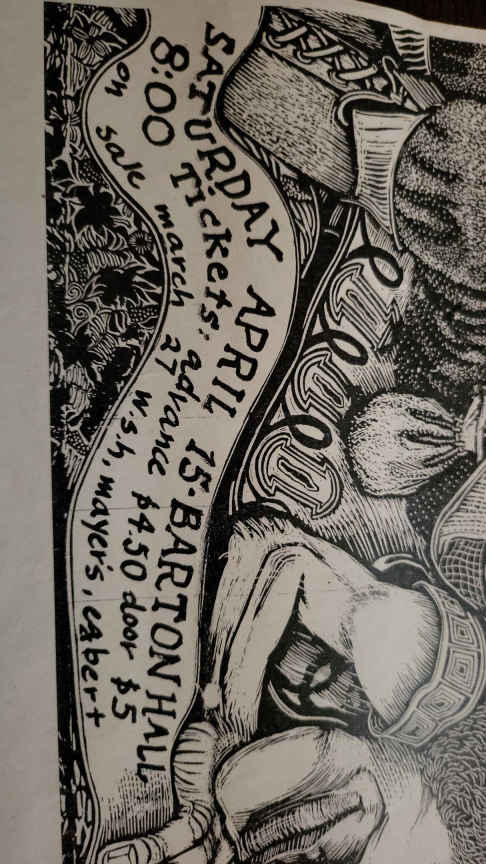 SATURDAY APRIL 15·BARTON HALL
8:00 Tickets: advance $4.50 door $5
on sale march 27 w.s.h, mayer's, egbert